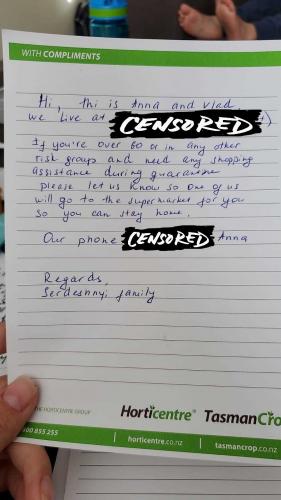 WITH COMPLIMENTS
Hi, thi is Anna and Vlad.
We live at CENSORED )
If you're over 60 or in any other
risk group and need any shopping
assistance during quarantine
please let us know so one of us
will go to the supermarket for you
so you can stay home.
Our phone CENSORED Anna
Regards,
Serdeshnyi family
THE HORTICENTRE GROUP
Horticentre® TasmanCro
800 855 255
horticentre.co.nz
tasmancrop.co.nz